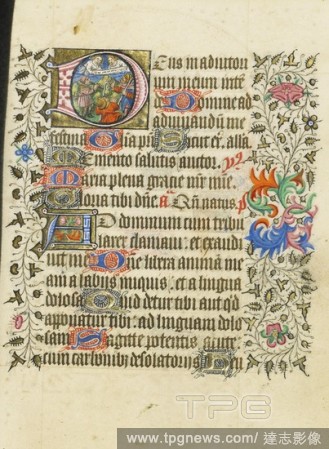 Deus in adiutori
um meum inte
Domine ad
adiuuandũ me
festina Glia pri Sicut er. alla
Memento salutis auctor. ps
Maria plena gracie mr mie.
Gloria tibi dñe. a Qñ natus. p
Ad dominum cum tribu
larer clamaui: et exaudi
uit me Domine libera animã me
am a labiis iniquis: et a lingua
dolosa Quid detur tibi aut qd
apponatur tibi: ad linguam dolo
sam Sagitte potentis acute
cum carbonibz desolatoriis Heu
TPG
www.tpgnews.com/ 達志影像